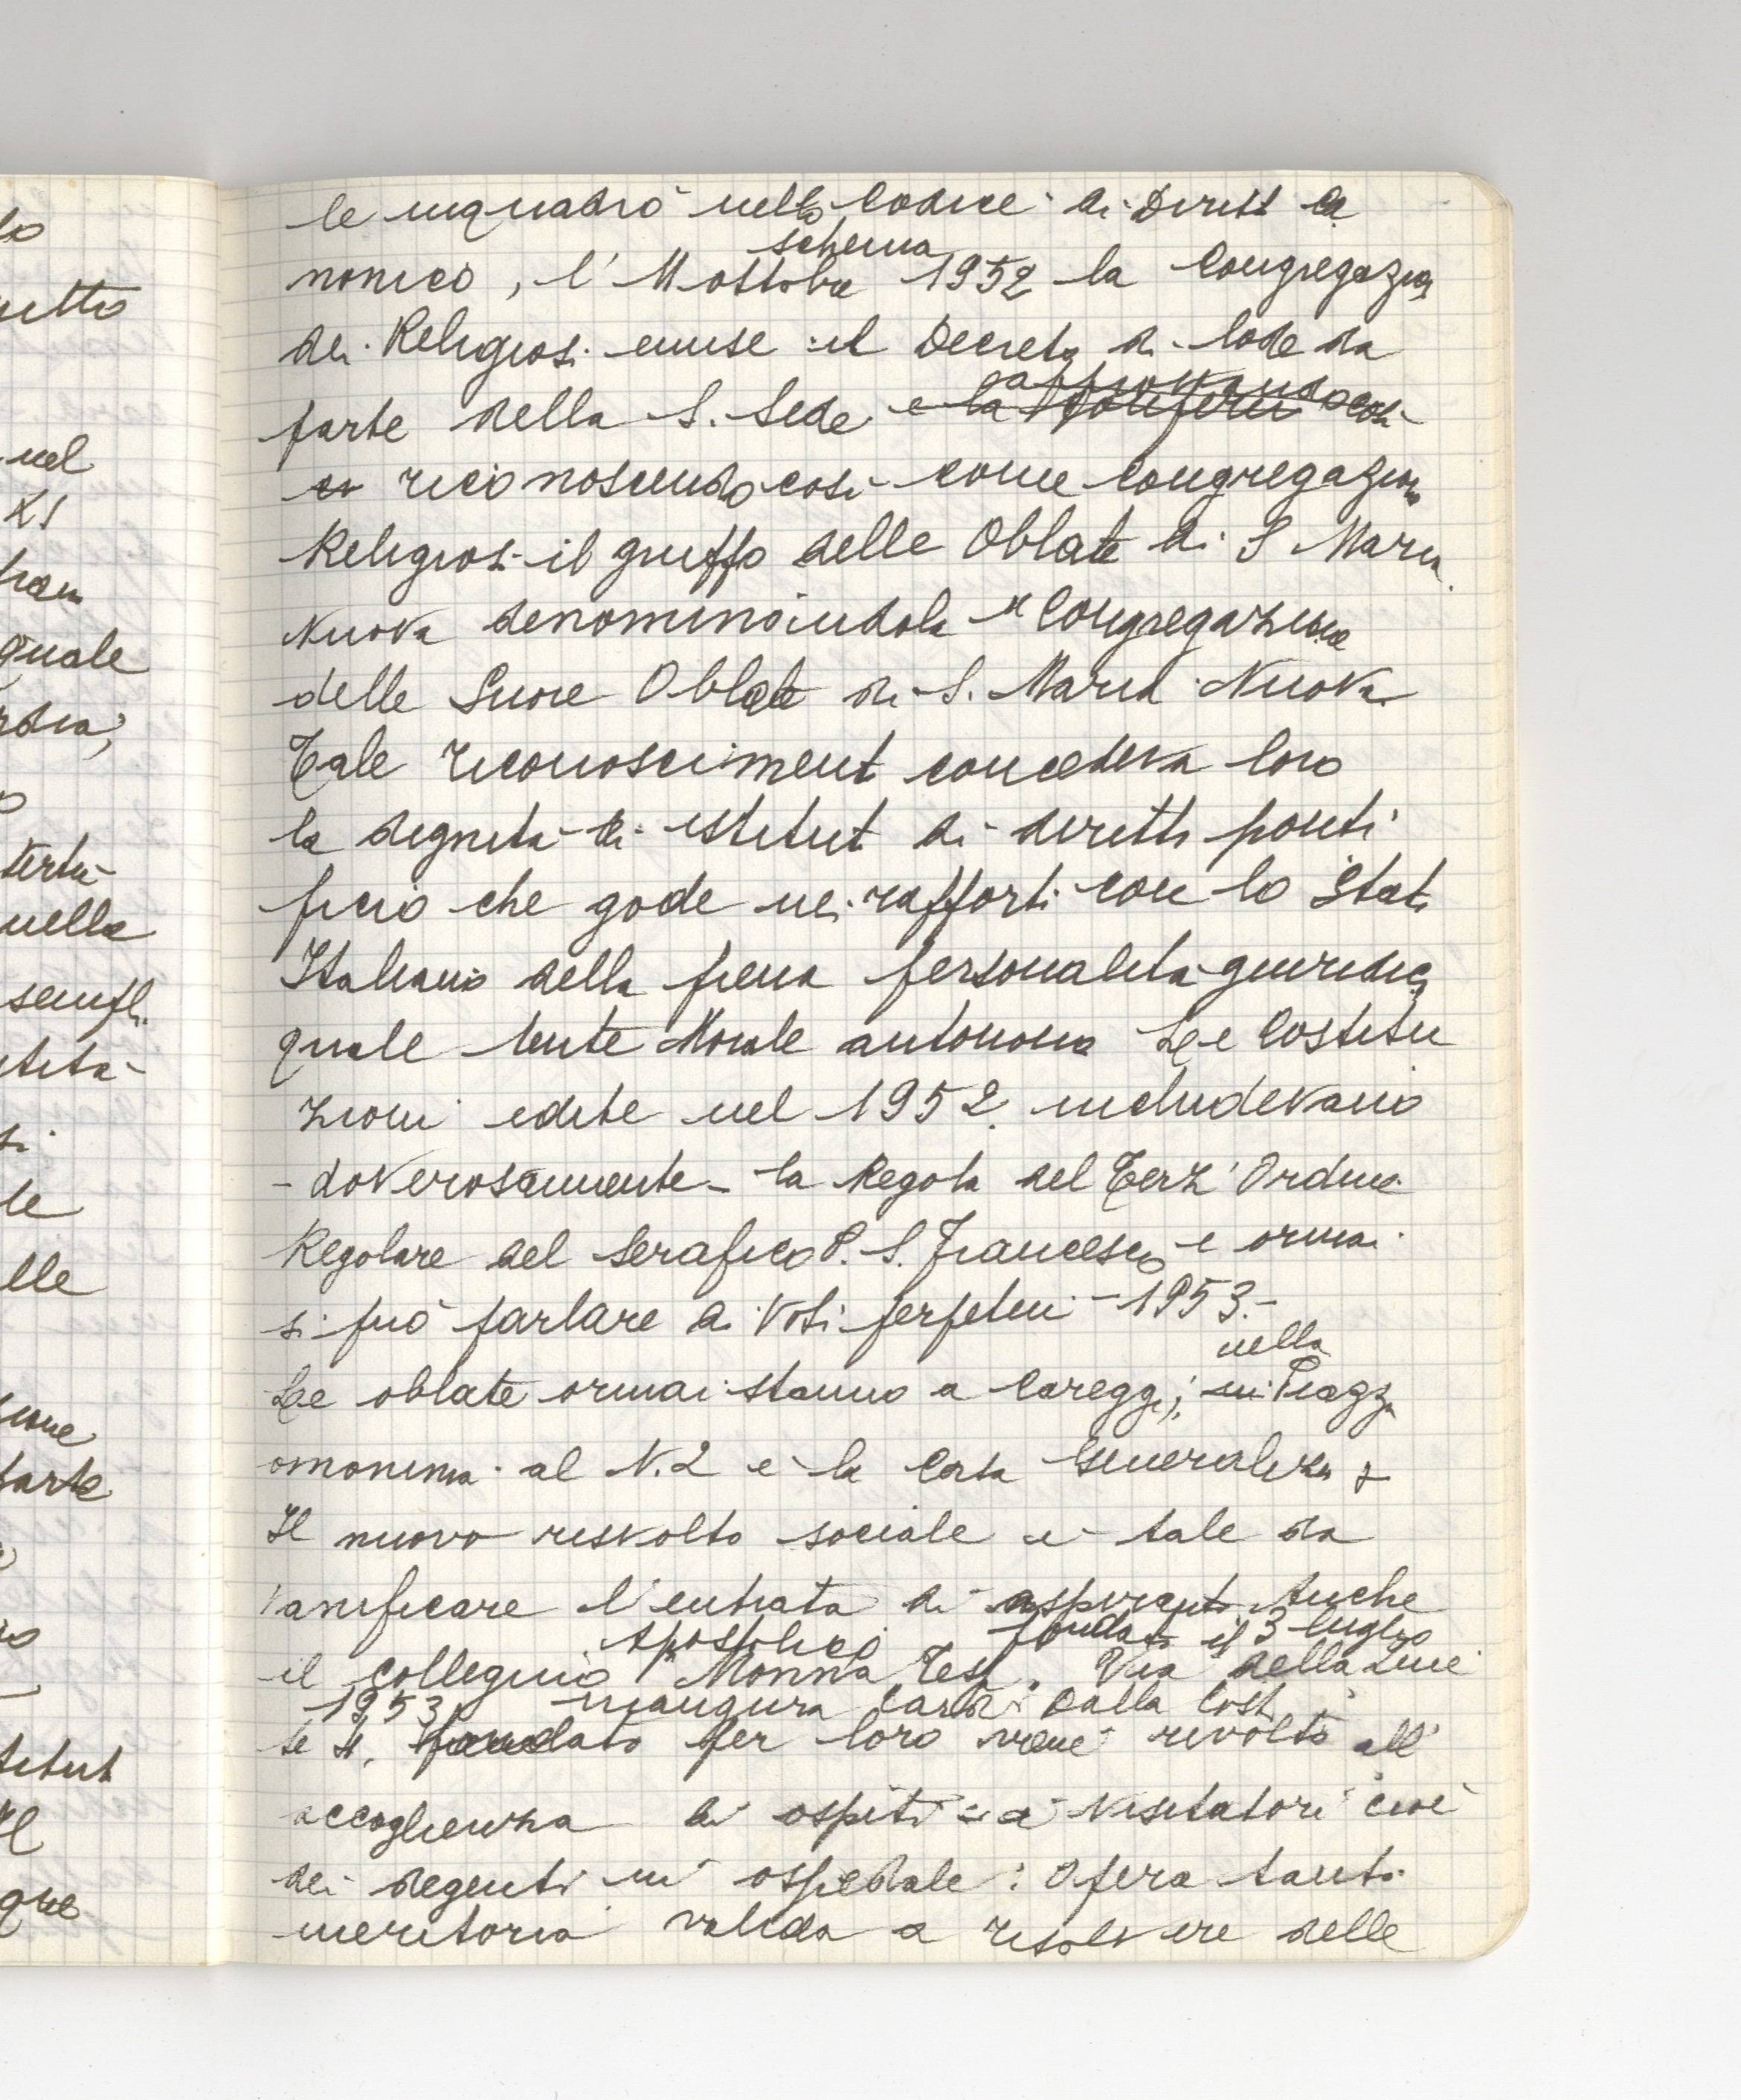 le inquadrò nello Codice di Diritt Ca
schema
nonico, l'11 ottobre 1952 la Congregazion
dei Religiosi emise il Decreto di lode da
approvando
parte della S. Sede e la così
riconoscendo così come Congregazione
Religiosi il gruppo delle Oblate di S Maria
Nuova denominandola "Congregazione
delle Suore Oblate di S. Maria Nuova
Tale riconosciment concedeva loro
la dignità di istitut di diritto ponti
ficio che gode nei rapporti con lo Stato
Italiano della piena personalità giuridica
quale Ente Morale autonomo Le Costitu
zioni edite nel 1952 includevano
- doverosamente - la Regola del Terz'Ordine
Regolare del Serafico P. S. Francesco e ormai
si può parlare di Voti perpetui - 1953 -
nella
Le oblate ormai stanno a Careggi; in Piazza
omonima al N.2 è la Casa Generalizia
Il nuovo risvolto sociale è tale da
vanificare l'entrata di aspiranti Anche
Apostolico fondato il 3 luglio
il collegino Monna Tes Via delle
1953 inaugura Card. Dalla Cost
te 4. fondato per loro viene rivolto all'
accoglienza di ospiti - a visitatori cioè
dei degenti in ospedale: Opera tanto
meritoria valida a risolvere delle
lo
etto
nel
XI
quale
nella
sempl.
le
lle
ione
parte
stitut
Il
que